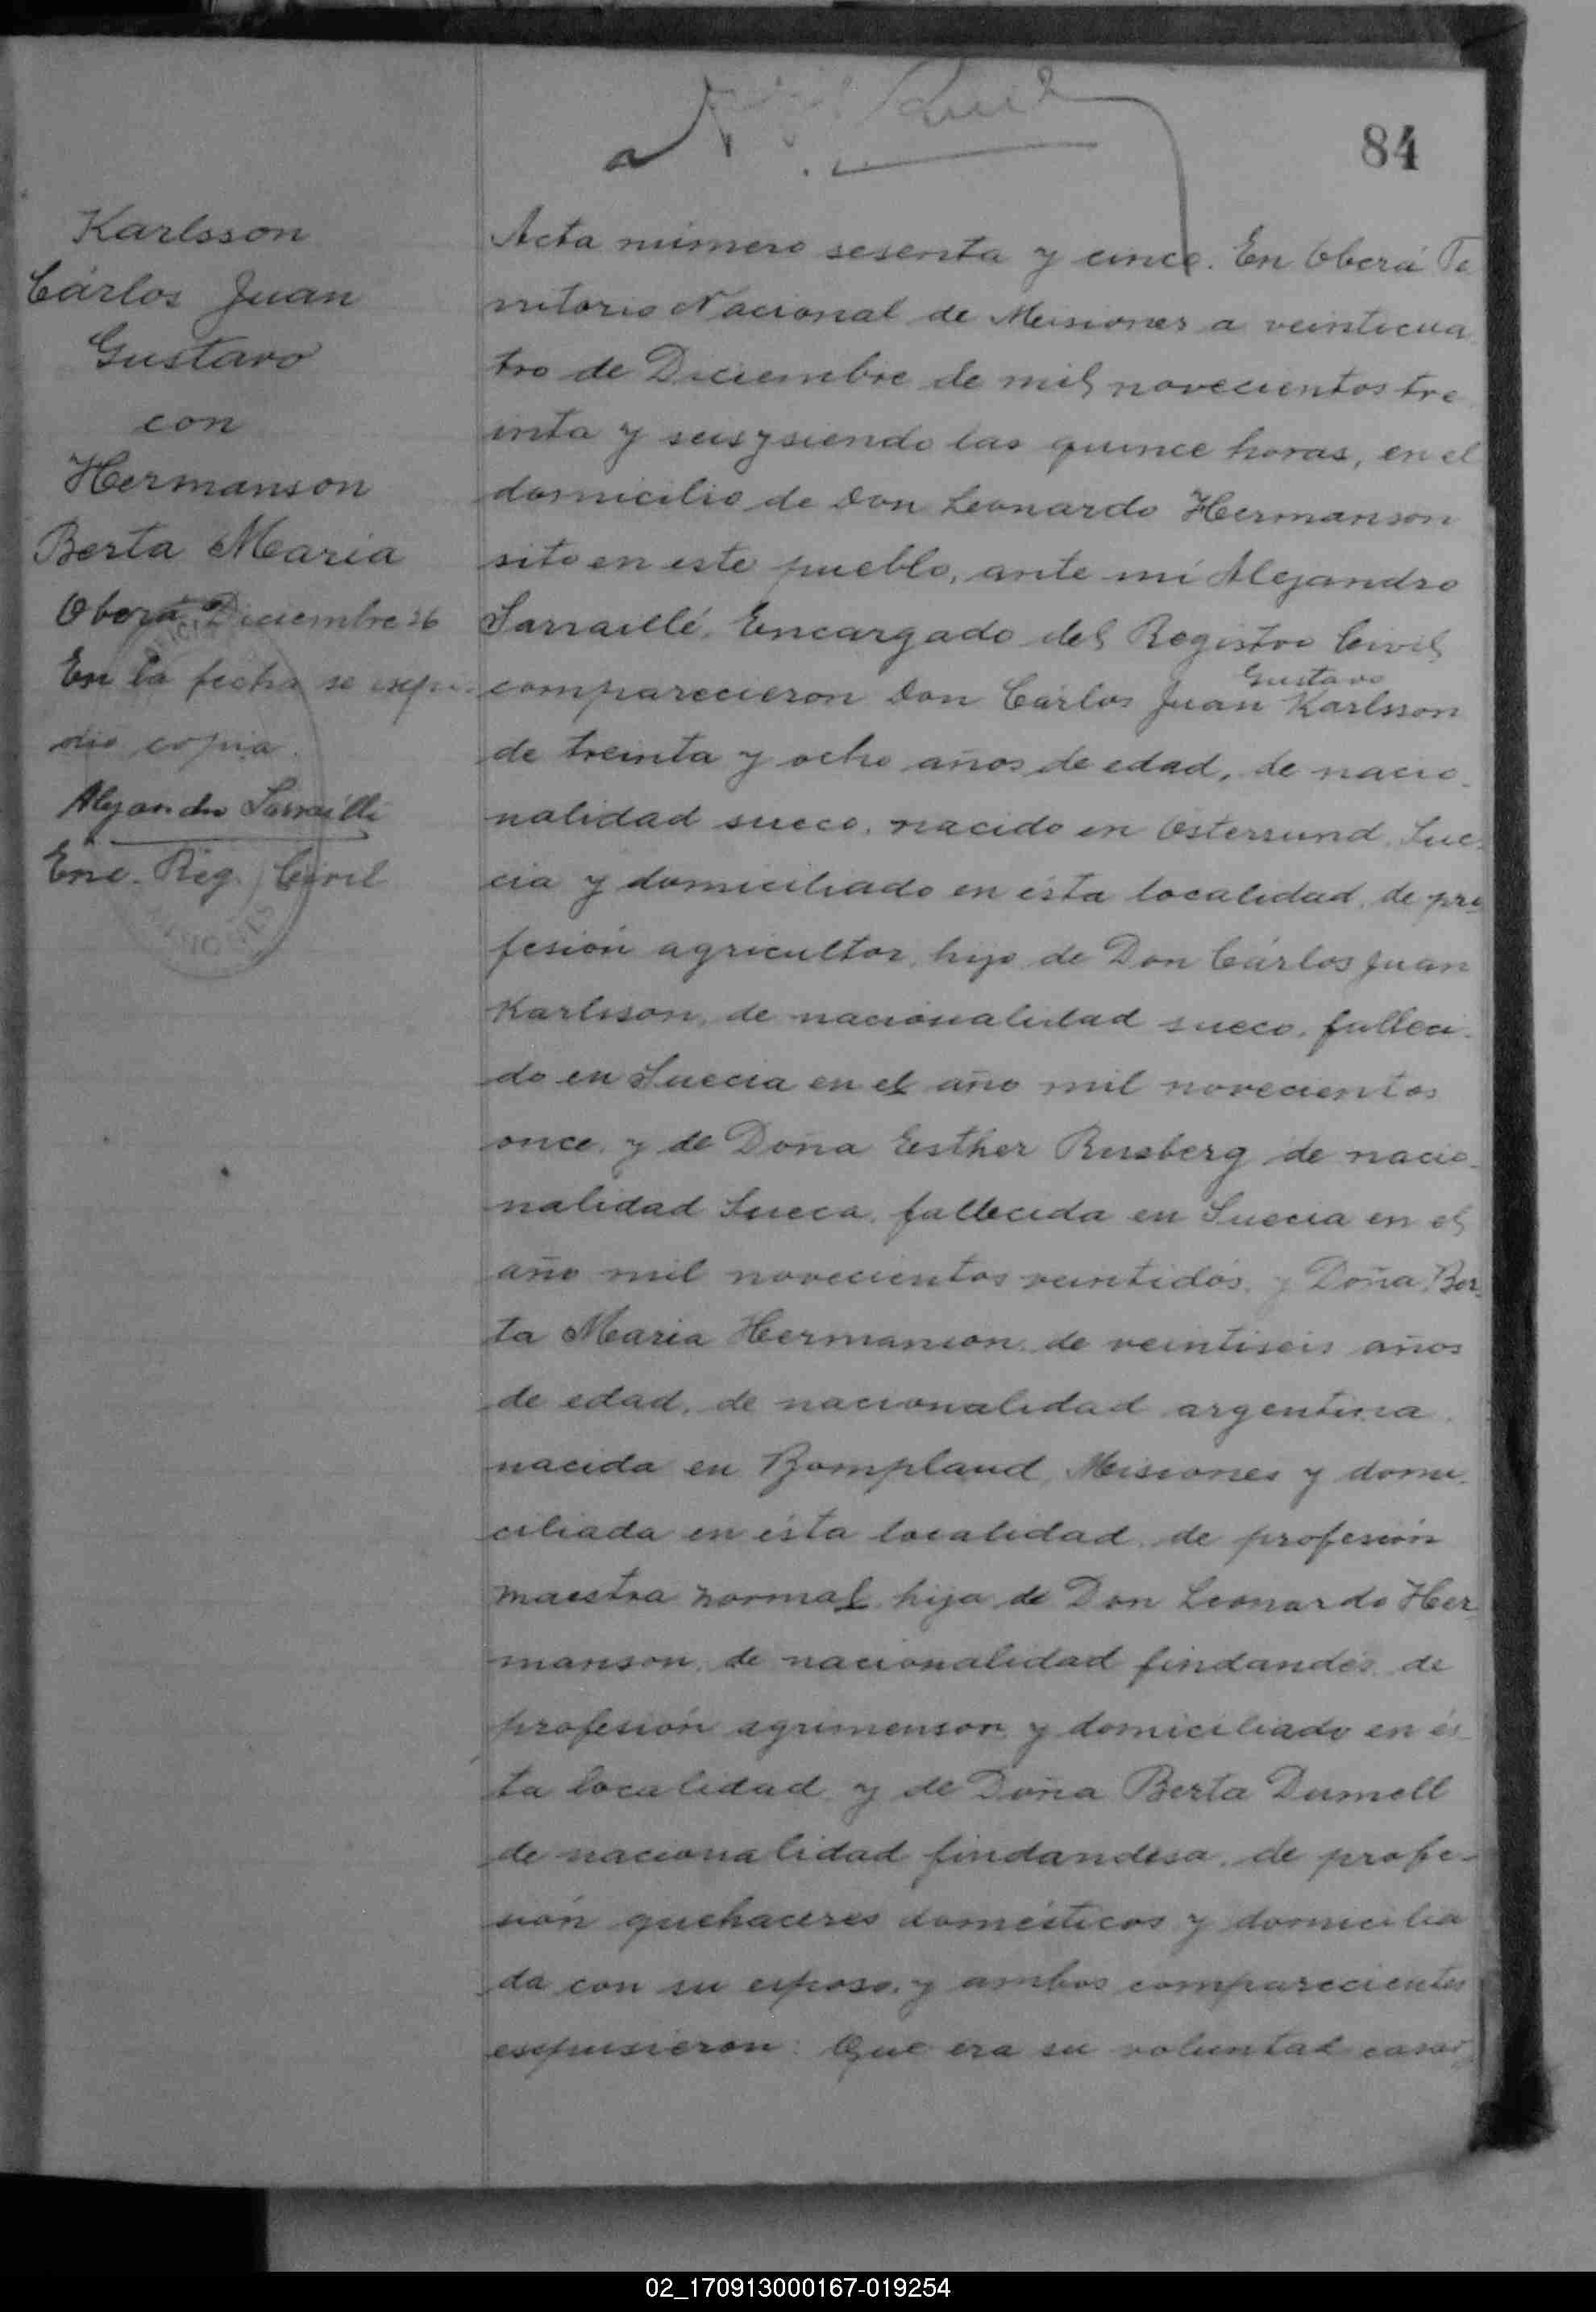 84
Karlsson
Cárlos Juan
Gustavo
con
Hermanson
Berta Maria
Oberá Diciembre 26
En la fecha se expi
dió copia.
Alejandro Sarraillé
Enc. Reg. Civil
MISIONES
Acta número sesenta y cinco. En Oberá Te
rritorio Nacional de Misiones a veinticua
tro de Diciembre de mil novecientos tre
inta y seis y siendo las quince horas, en el
domicilio de Don Leonardo Hermanson
sito en este pueblo, ante mi Alejandro
Sarraillé, Encargado del Registro Civil
Gustavo
comparecieron Don Cárlos Juan Karlsson
de treinta y ocho años de edad, de nacio-
nalidad sueco, nacido en Ostersund, Sue-
cia y domiciliado en ésta localidad, de pro
fesión agricultor, hijo de Don Cárlos Juan
Karlsson, de nacionalidad sueco, falleci-
do en Suecia en el año mil novecientos
once, y de Doña Esther Rusberg de nacio-
nalidad Sueca, fallecida en Suecia en el
año mil novecientos veintidós, y Doña Ber-
ta Maria Hermanson, de veintiseis años
de edad, de nacionalidad argentina,
nacida en Bompland, Misiones y domi-
ciliada en ésta localidad, de profesión
maestra normal, hija de Don Leonardo Her-
manson, de nacionalidad findandés, de
profesión agrimensor y domiciliado en és-
ta localidad, y de Doña Berta Dumell
de nacionalidad findandesa, de profe-
sión quehaceres domésticos y domicilia
da con su esposo, y ambos comparecientes
expusieron: Que era su voluntad casar
02_170913000167-019254